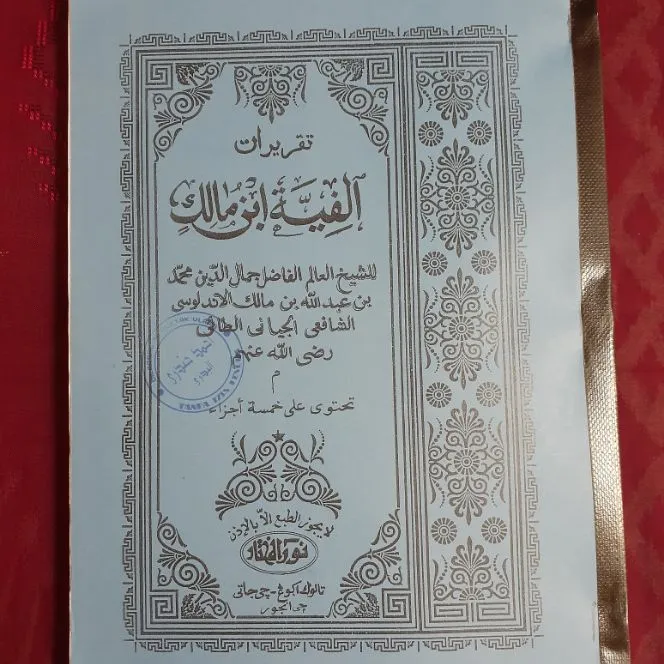 تقريرات
الفية ابن مالك
للشيخ العالم الفاضل جمال الدين محمد
بن عبد الله بن مالك الاندلوسى
الشافعى الجيانى الطائى
رضى الله عنه
م
تحتوى على خمسة أجزاء
لا يجوز الطبع الا بالإذن
تالوك اكوغ - چى جاتى
چى انجور